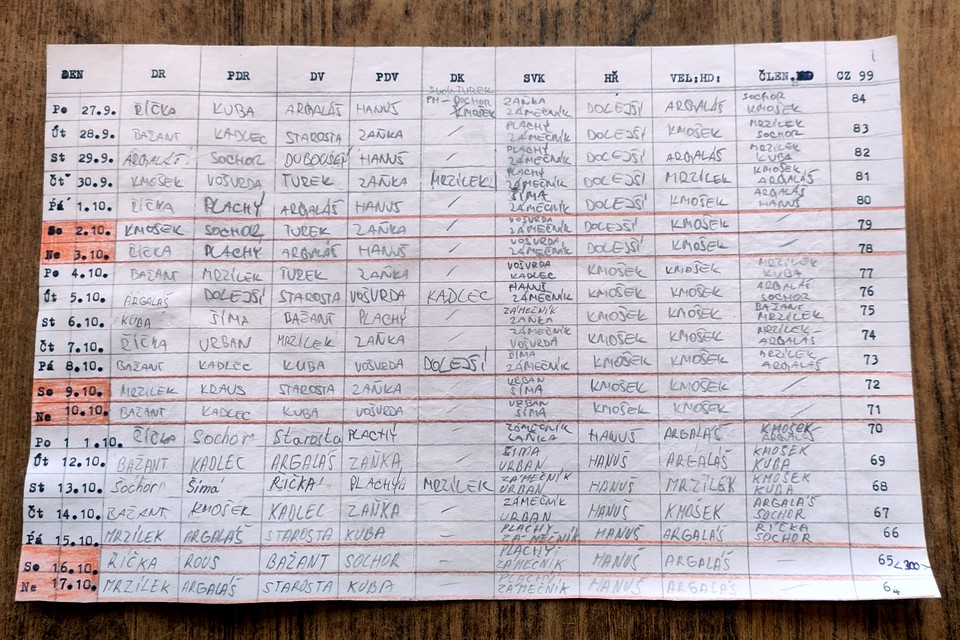 DEN DR PDR DV PDV DK SVK HŘ VEL:HD: ČLEN. CZ 99
Po 27.9. ŘÍČKA KUBA ARGALÁŠ HANUŠ TUREK PH- SOCHOR KMOŠEK ZAŇKA ZÁMEČNÍK DOLEJŠÍ ARGALÁŠ SOCHOR KMOŠEK 84
Út 28.9. BAŽANT KADLEC STAROSTA ZAŇKA / PLACHÝ ZÁMEČNÍK DOLEJŠÍ KMOŠEK MRZÍLEK SOCHOR 83
St 29.9. ARGALÁŠ SOCHOR HANUŠ / PLACHÝ ZÁMEČNÍK DOLEJŠÍ ARGALÁŠ MRZÍLEK KUBA 82
Čt 30.9. KMOŠEK VOŠVRDA TUREK ZAŇKA MRZÍLEK PLACHÝ ZÁMEČNÍK DOLEJŠÍ MRZÍLEK KMOŠEK ARGALÁŠ 81
Pá 1.10. ŘÍČKA PLACHÝ ARGALÁŠ HANUŠ / ŠÍMA ZÁMEČNÍK DOLEJŠÍ KMOŠEK ARGALÁŠ HANUŠ 80
So 2.10. KMOŠEK SOCHOR TUREK ZAŇKA / VOŠVRDA ZÁMEČNÍK DOLEJŠÍ KMOŠEK / 79
Ne 3.10. ŘÍČKA PLACHÝ ARGALÁŠ HANUŠ / VOŠVRDA ZÁMEČNÍK DOLEJŠÍ KMOŠEK / 78
Po 4.10. BAŽANT MRZÍLEK TUREK ZAŇKA / VOŠVRDA KADLEC KMOŠEK KMOŠEK MRZÍLEK KUBA 77
Út 5.10. ARGALÁŠ DOLEJŠÍ STAROSTA VOŠVRDA KADLEC HANUŠ ZÁMEČNÍK KMOŠEK KMOŠEK ARGALÁŠ SOCHOR 76
St 6.10. KUBA ŠÍMA BAŽANT PLACHÝ / ZÁMEČNÍK ZAŇKA KMOŠEK KMOŠEK BAŽANT MRZÍLEK 75
Čt 7.10. ŘÍČKA URBAN MRZÍLEK ZAŇKA / ZÁMEČNÍK VOŠVRDA KMOŠEK KMOŠEK MRZÍLEK ARGALÁŠ 74
Pá 8.10. BAŽANT KADLEC KUBA VOŠVRDA DOLEJŠÍ ŠÍMA ZÁMEČNÍK KMOŠEK KMOŠEK MRZÍLEK ARGALÁŠ 73
So 9.10. MRZÍLEK KRAUS STAROSTA ZAŇKA / URBAN ŠÍMA KMOŠEK KMOŠEK / 72
Ne 10.10. BAŽANT KADLEC KUBA VOŠVRDA / URBAN ŠÍMA KMOŠEK KMOŠEK / 71
Po 1 1.10. ŘÍČKA Sochor Starosta PLACHÝ / ZÁMEČNÍK HANUŠ ARGALÁŠ KMOŠEK ARGALÁŠ 70
Út 12.10. BAŽANT KADLEC ARGALÁŠ ZAŇKA / ŠÍMA URBAN HANUŠ ARGALÁŠ KMOŠEK KUBA 69
St 13.10. Šochor Šíma ŘÍČKA PLACHÝ MRZÍLEK ZÁMEČNÍK URBAN HANUŠ MRZÍLEK KMOŠEK KUBA 68
Čt 14.10. BAŽANT KMOŠEK KADLEC ZAŇKA – ZÁMEČNÍK URBAN HANUŠ KMOŠEK ARGALÁŠ SOCHOR 67
Pá 15.10. MRZÍLEK ARGALÁŠ STAROSTA KUBA – PLACHÝ ZÁMEČNÍK HANUŠ ARGALÁŠ ŘÍČKA SOCHOR 66
So 16.10. ŘÍČKA ROUS BAŽANT SOCHOR – PLACHÝ ZÁMEČNÍK HANUŠ ARGALÁŠ – 65 <300
Ne 17.10. MRZÍLEK ARGALÁŠ STAROSTA KUBA – PLACHÝ ZÁMEČNÍK HANUŠ ARGALÁŠ – 64